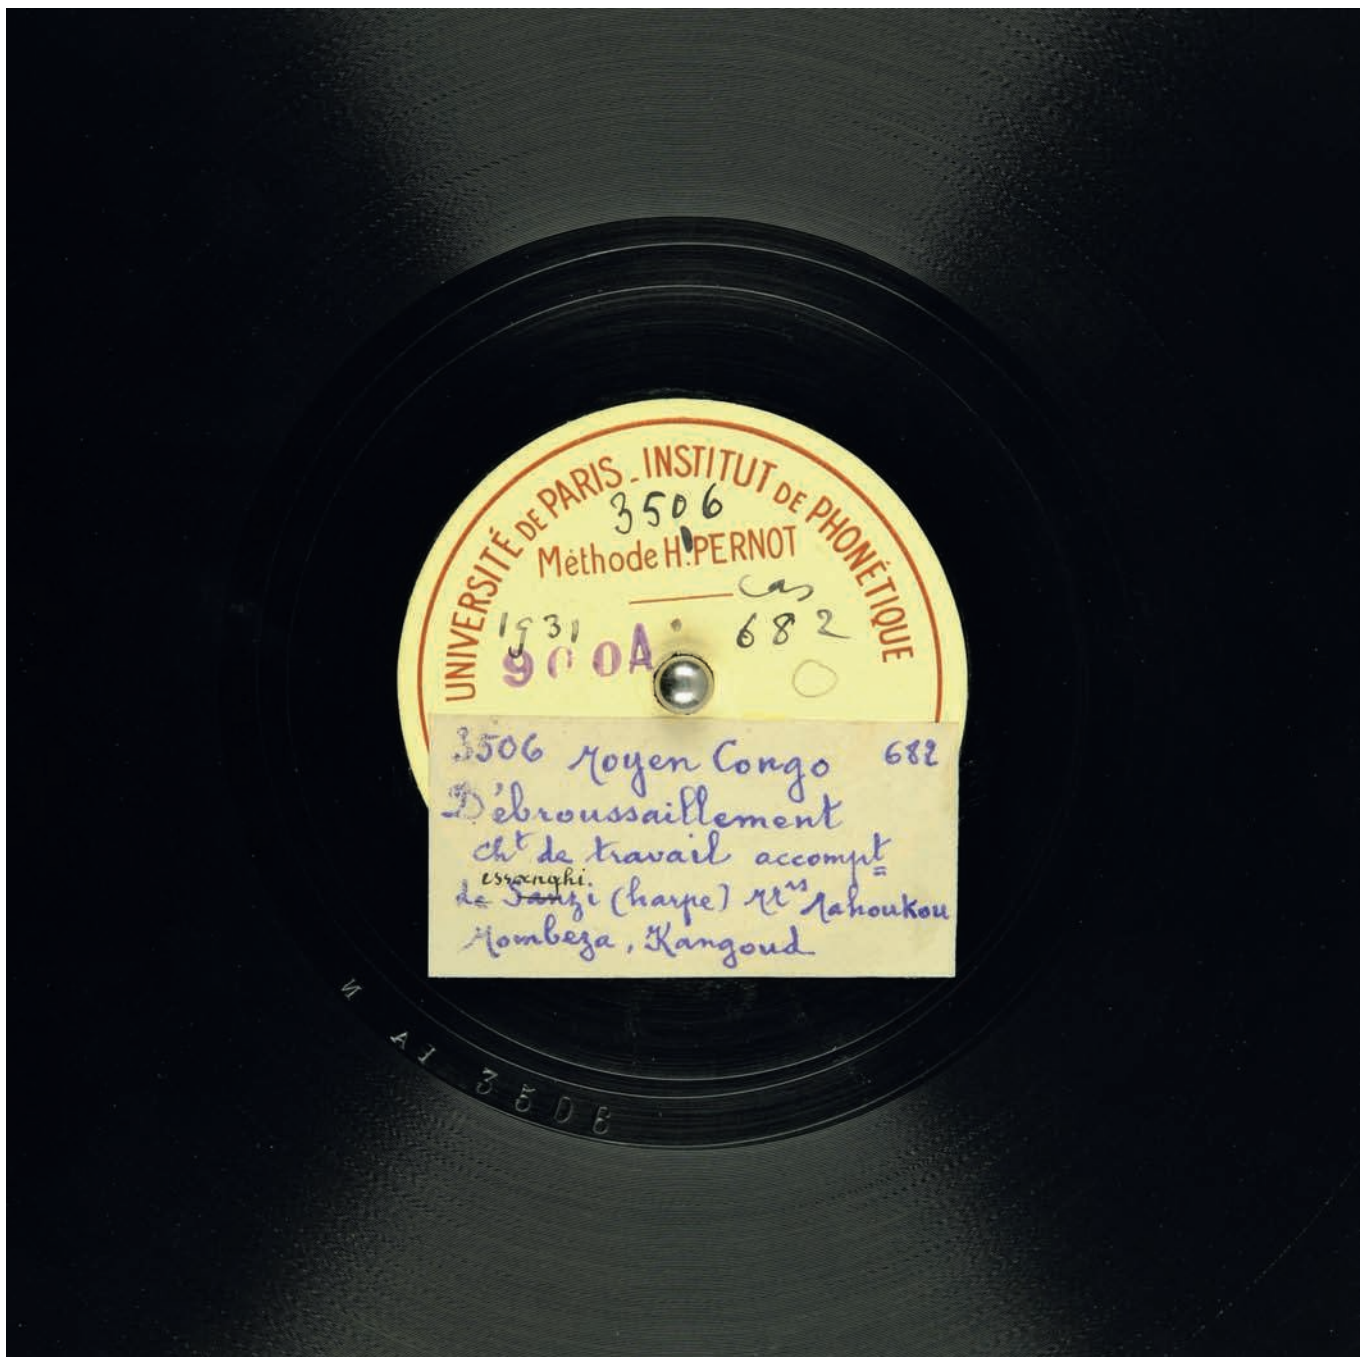 UNIVERSITÉ DE PARIS - INSTITUT DE PHONÉTIQUE
3506
Méthode H. PERNOT
cas
1931 682
900A
3506 Moyen Congo 682
Débroussaillement
cht de travail accompt
essanghi.
de Sanzi (harpe) Mrs Mahoukou
Mombeza, Kangoud
N AI 3506